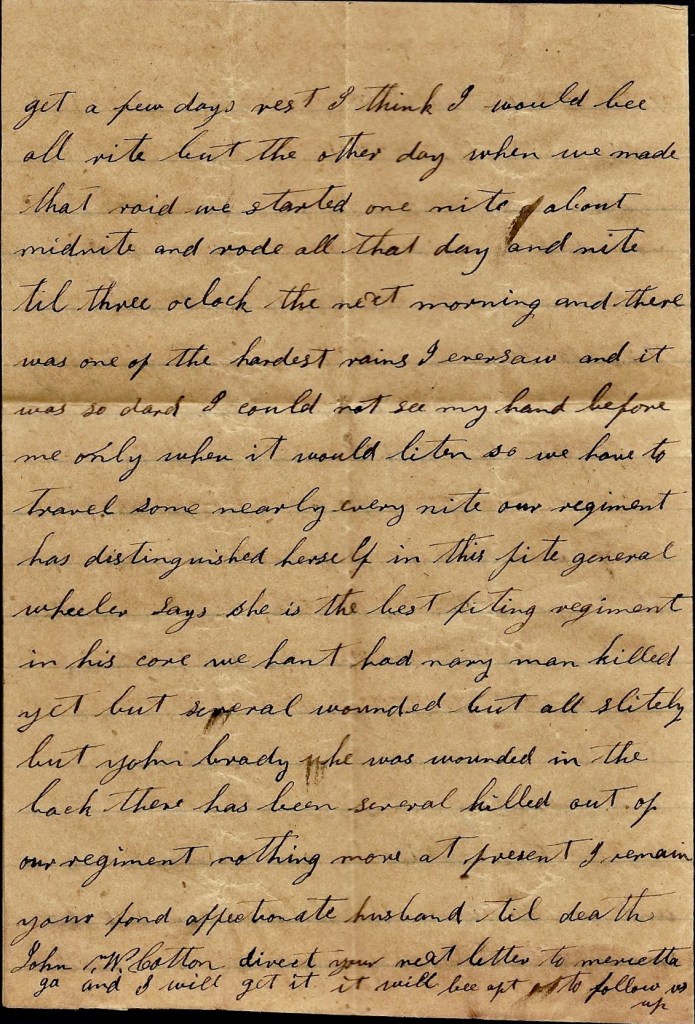 get a few days rest I think I would bee
all rite but the other day when we made
that raid we started one nite about
midnite and rode all that day and nite
til three oclock the next morning and there
was one of the hardest rains I ever saw and it
was so dard I could not see my hand before
me only when it would liten so we have to
travel some nearly every nite our regiment
has distinguished herself in this fite general
wheeler says she is the best fiting regiment
in his core we hant had nary man killed
yet but several wounded but all slitely
but john brady he was wounded in the
back there has been several killed out of
our regiment nothing more at present I remain
your fond affectionate husband til death
John W. Cotton direct your next letter to merietta
ga and I will get it it will bee apt to follow us
up